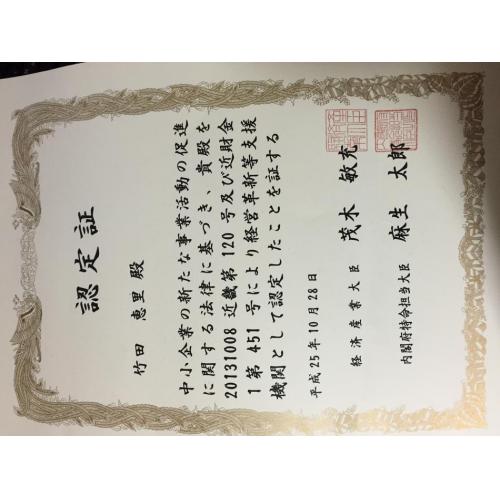 認定証
竹田 恵里 殿
中小企業の新たな事業活動の促進
に関する法律に基づき、貴殿を
20131008 近畿第 120 号及び近財金
1 第 451 号により経営革新等支援
機関として認定したことを証する
平成 25 年 10 月 28 日
経済産業大臣 茂木 敏充
内閣府特命担当大臣 麻生 太郎